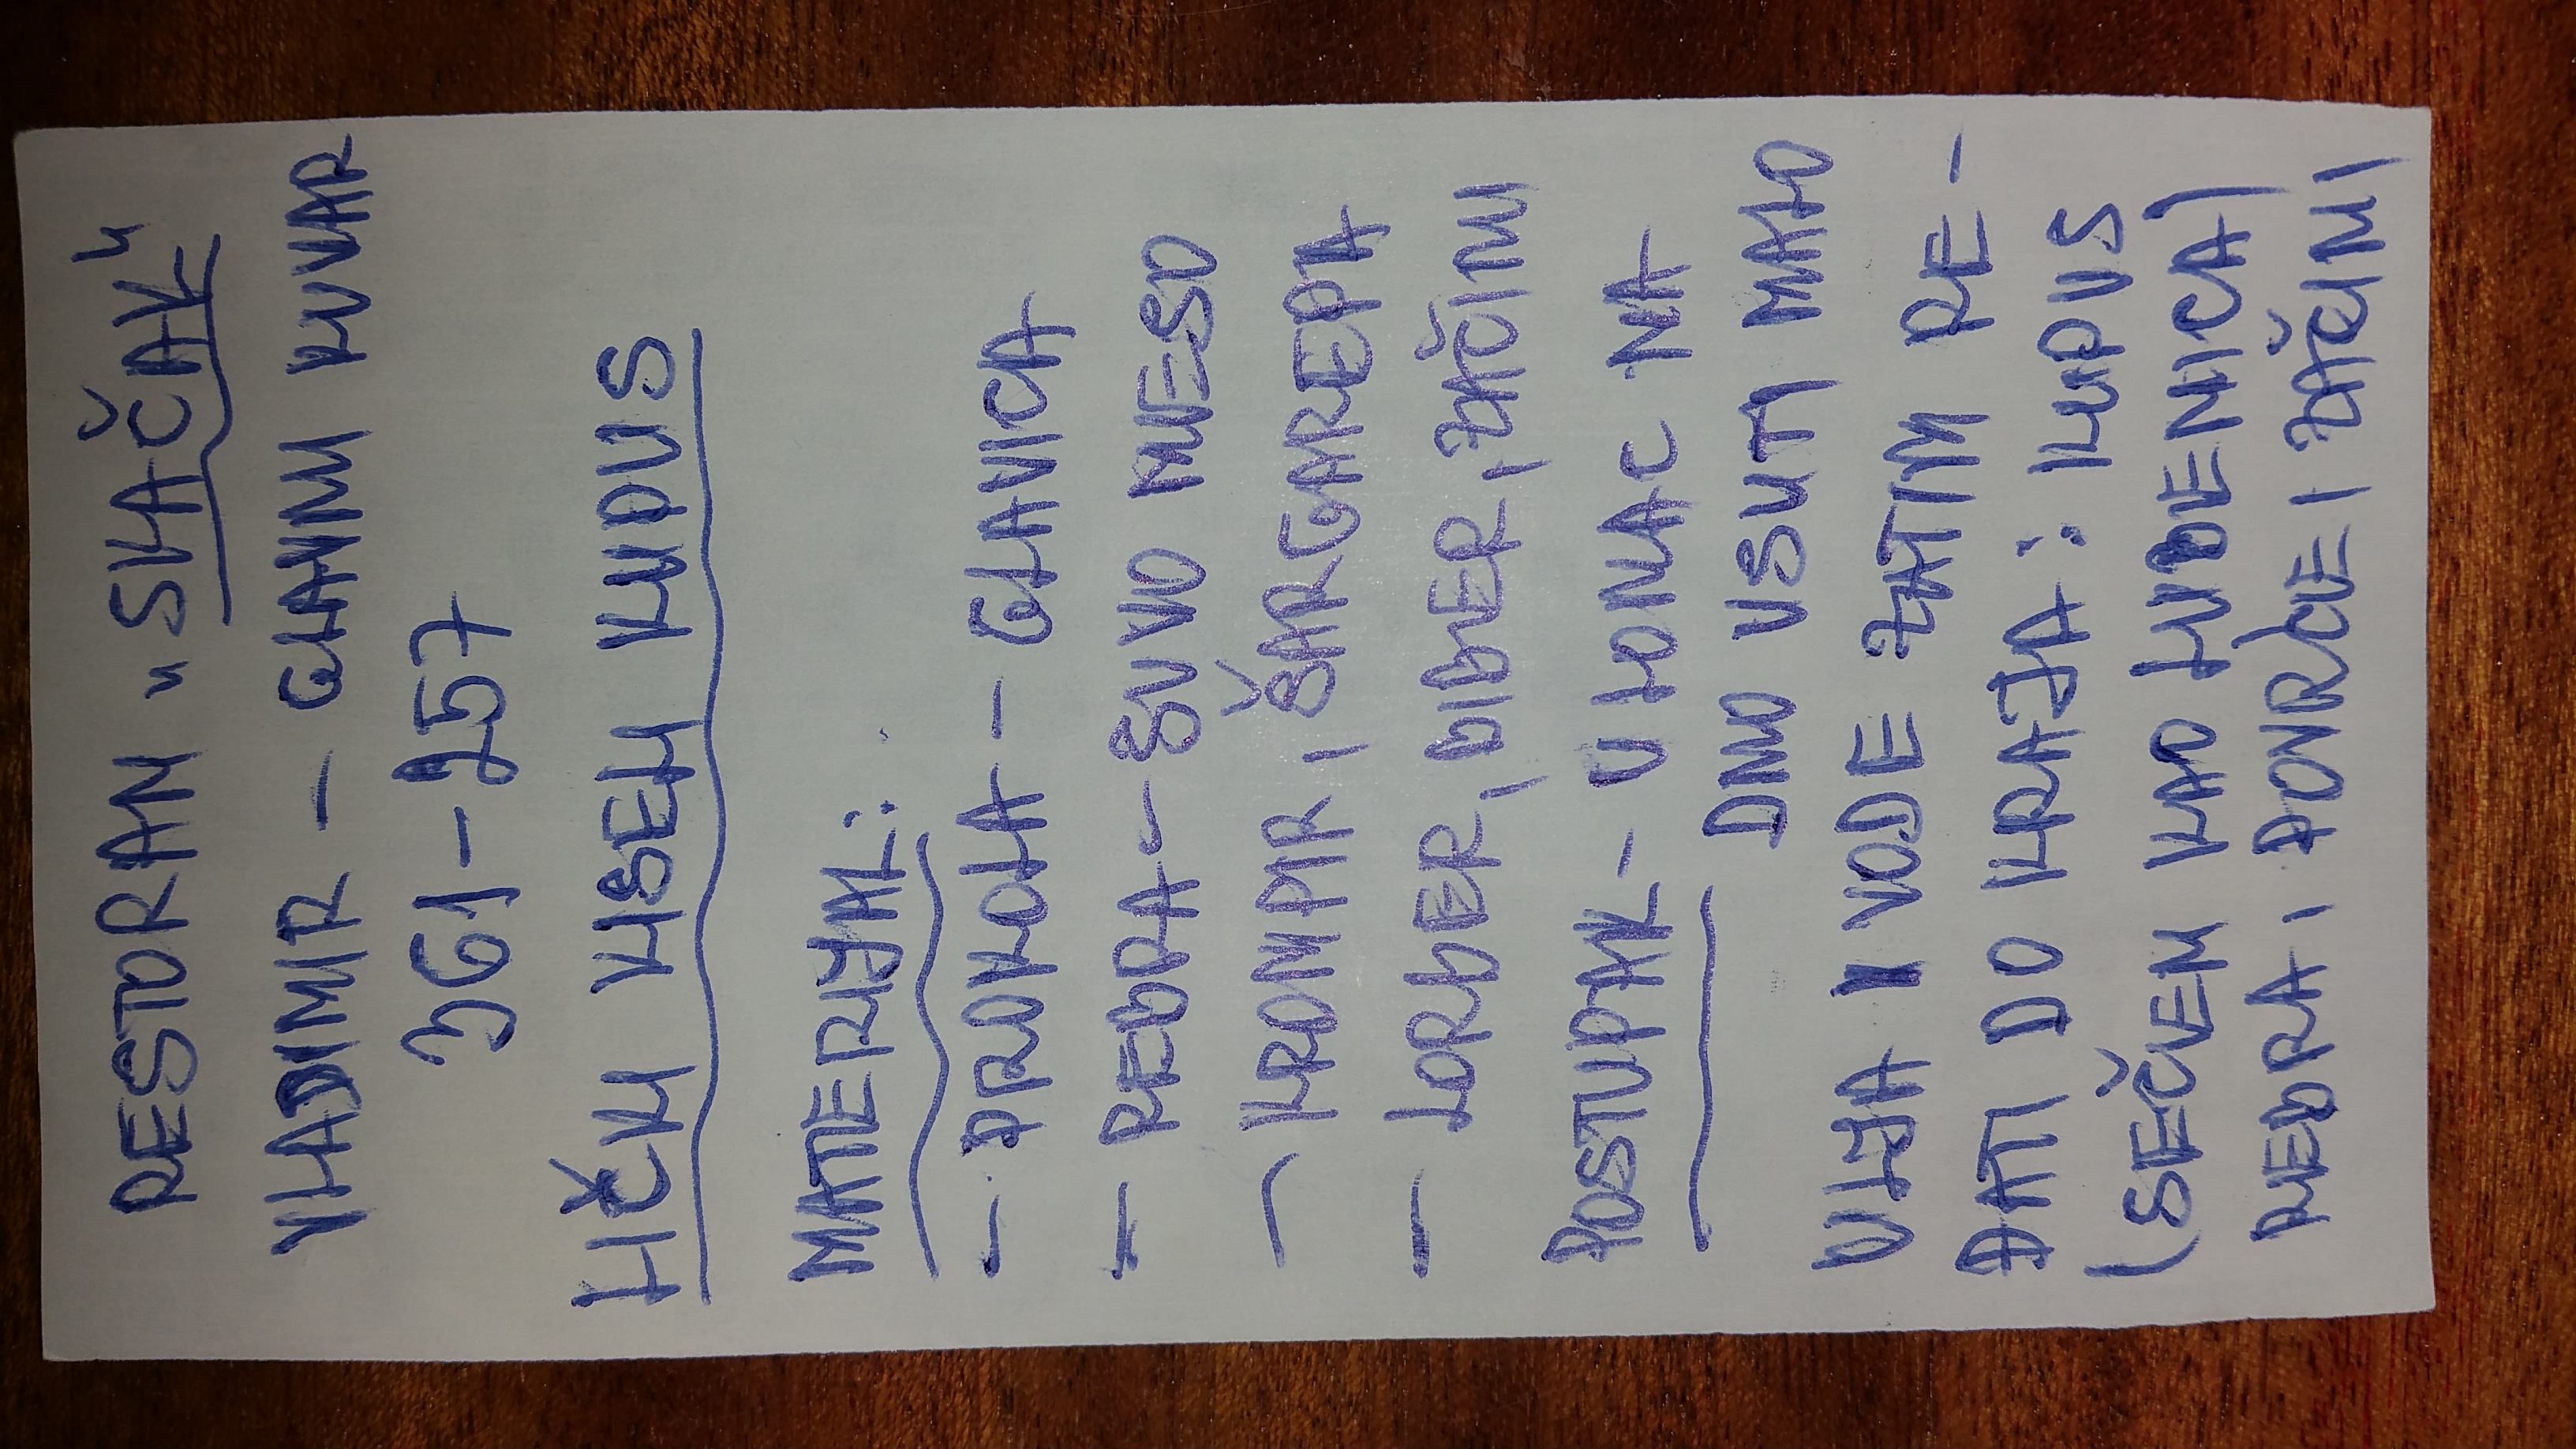 RESTORAN „SKAČAK“
VLADIMIR – GLAVNI KUVAR
361–257
LIČKI KISELI KUPUS
MATERIJAL:
– PROKOLA – GLAVICA
– REBRA – SUVO MESO
– KROMPIR, ŠARGAREPA
– LORBER, BIBER, ZAČINI
POSTUPAK – U LONAC NA
DNO USUTI MALO
ULJA I VODE ZATIM RE-
ĐATI DO KRAJA: KUPUS
(SEČEM KAO LUBENICA)
REBRA, POVRĆE I ZAČINI